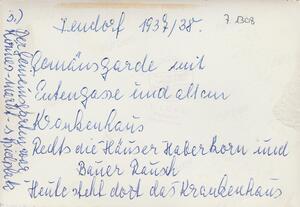 Zendorf 1937/38.
7.1308
Gemänsgarde mit
Entengasse und altem
Krankenhaus
Rechts die Häuser Haberkorn und
Bauer Rausch
Heute steht dort das Krankenhaus
5.)
Der Gemeinsgarten war
Körner-Markt-Spielplatz